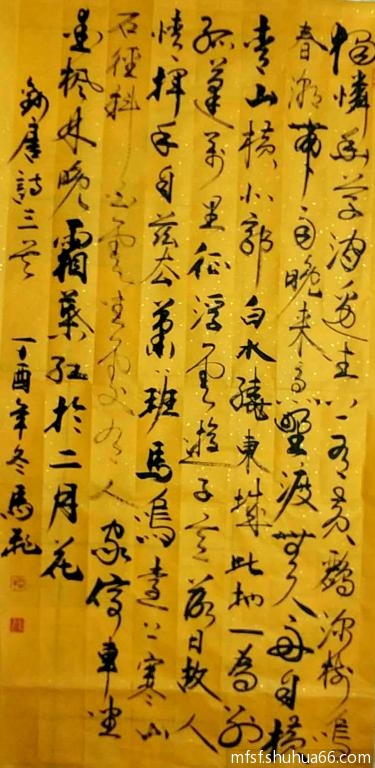 獨憐幽草澗邊生上有黃鸝深樹鳴
春潮帶雨晚來急野渡無人舟自橫
青山橫北郭白水繞東城此地一為別
孤蓬萬里征浮雲遊子意落日故人
情揮手自茲去蕭〻班馬鳴遠上寒山
石徑斜白雲生處有人家停車坐
愛楓林晚霜葉紅於二月花
錄唐詩三首 丁酉年冬馬
mfsf.shuhua66.com